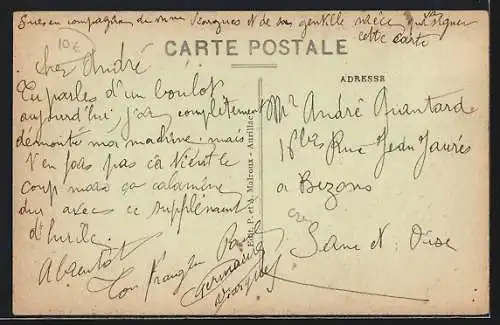 en compagnie de Georgues et de sa gentille nièce qui signer
cette carte
10€
CARTE POSTALE
ADRESSE
Cher André
Tu parles d'un boulot
aujourd'hui, j'ai complètement
démonté ma machine. mais
t'en fais pas ça vient le
coup mais ça calamine
dur avec ce supplément
d'huile.
A bientôt
Ton frangin
Germaine
Georgues
Edit. P. et A. Malroux - Aurillac
Mr André Quantard
18 bis Rue Jean Jaurès
a Bezons
Seine et Oise